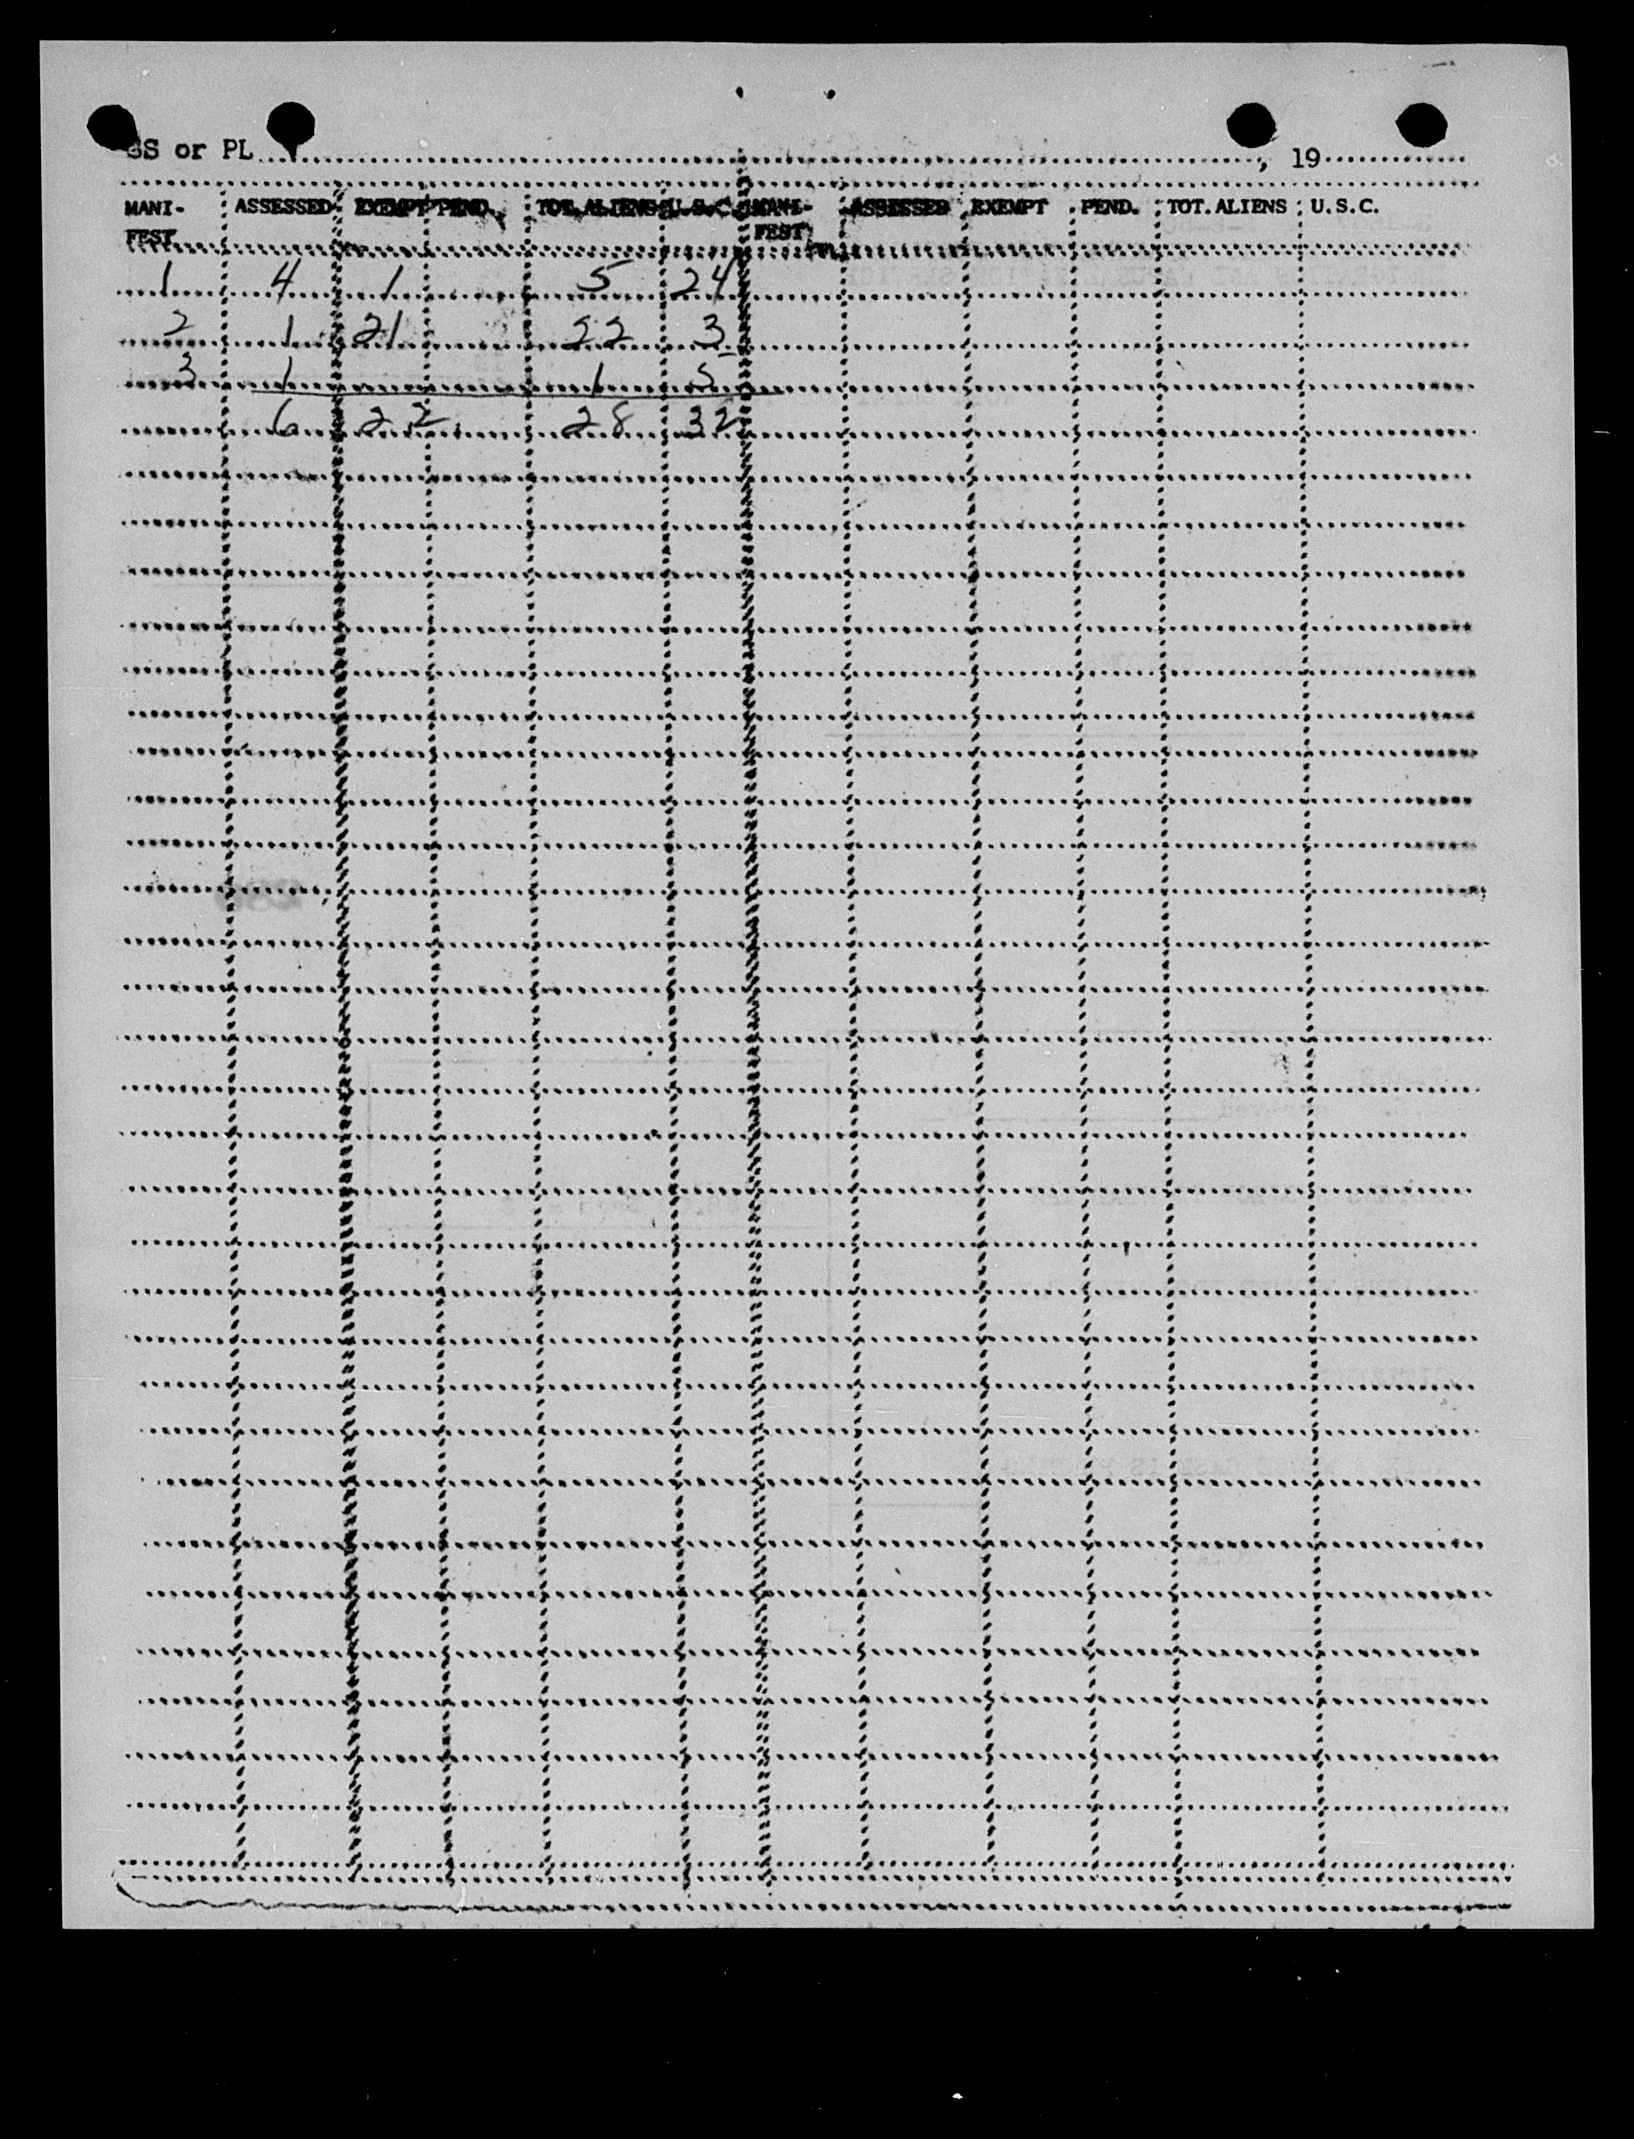 SS or PL , 19
MANI- ASSESSED EXEMPT PEND. TOT. ALIENS U.S.C. MANI- ASSESSED EXEMPT PEND. TOT. ALIENS U.S.C.
FEST FEST
1 4 1 5 24
2 1 21 22 3
3 1 1 5
6 22 28 32